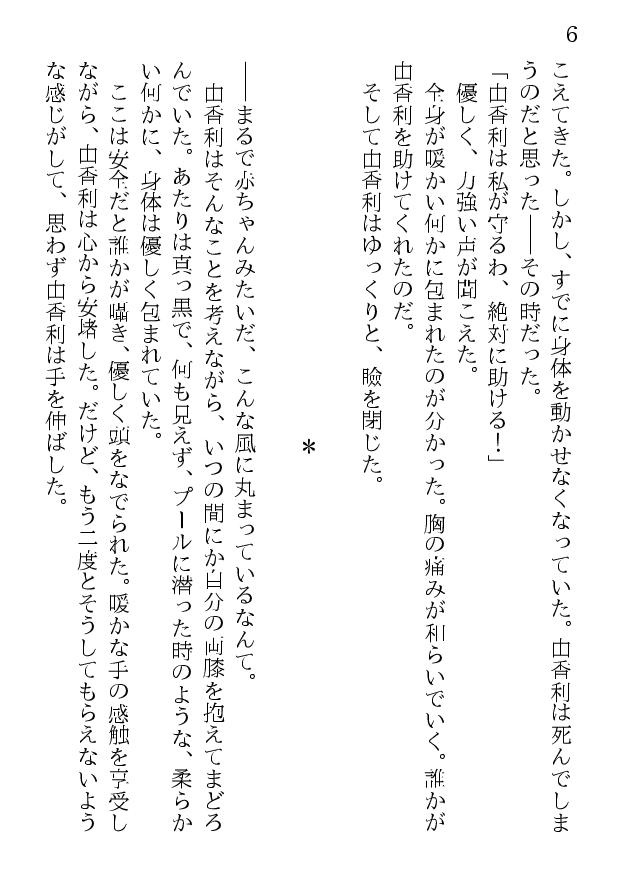 6
こえてきた。しかし、すでに身体を動かせなくなっていた。由香利は死んでしま
うのだと思った――その時だった。
「由香利は私が守るわ、絶対に助ける！」
優しく、力強い声が聞こえた。
全身が暖かい何かに包まれたのが分かった。胸の痛みが和らいでいく。誰かが
由香利を助けてくれたのだ。
そして由香利はゆっくりと、瞼を閉じた。
＊
――まるで赤ちゃんみたいだ、こんな風に丸まっているなんて。
由香利はそんなことを考えながら、いつの間にか自分の両膝を抱えてまどろ
んでいた。あたりは真っ黒で、何も見えず、プールに潜った時のような、柔らか
い何かに、身体は優しく包まれていた。
ここは安全だと誰かが囁き、優しく頭をなでられた。暖かな手の感触を享受し
ながら、由香利は心から安堵した。だけど、もう二度とそうしてもらえないよう
な感じがして、思わず由香利は手を伸ばした。